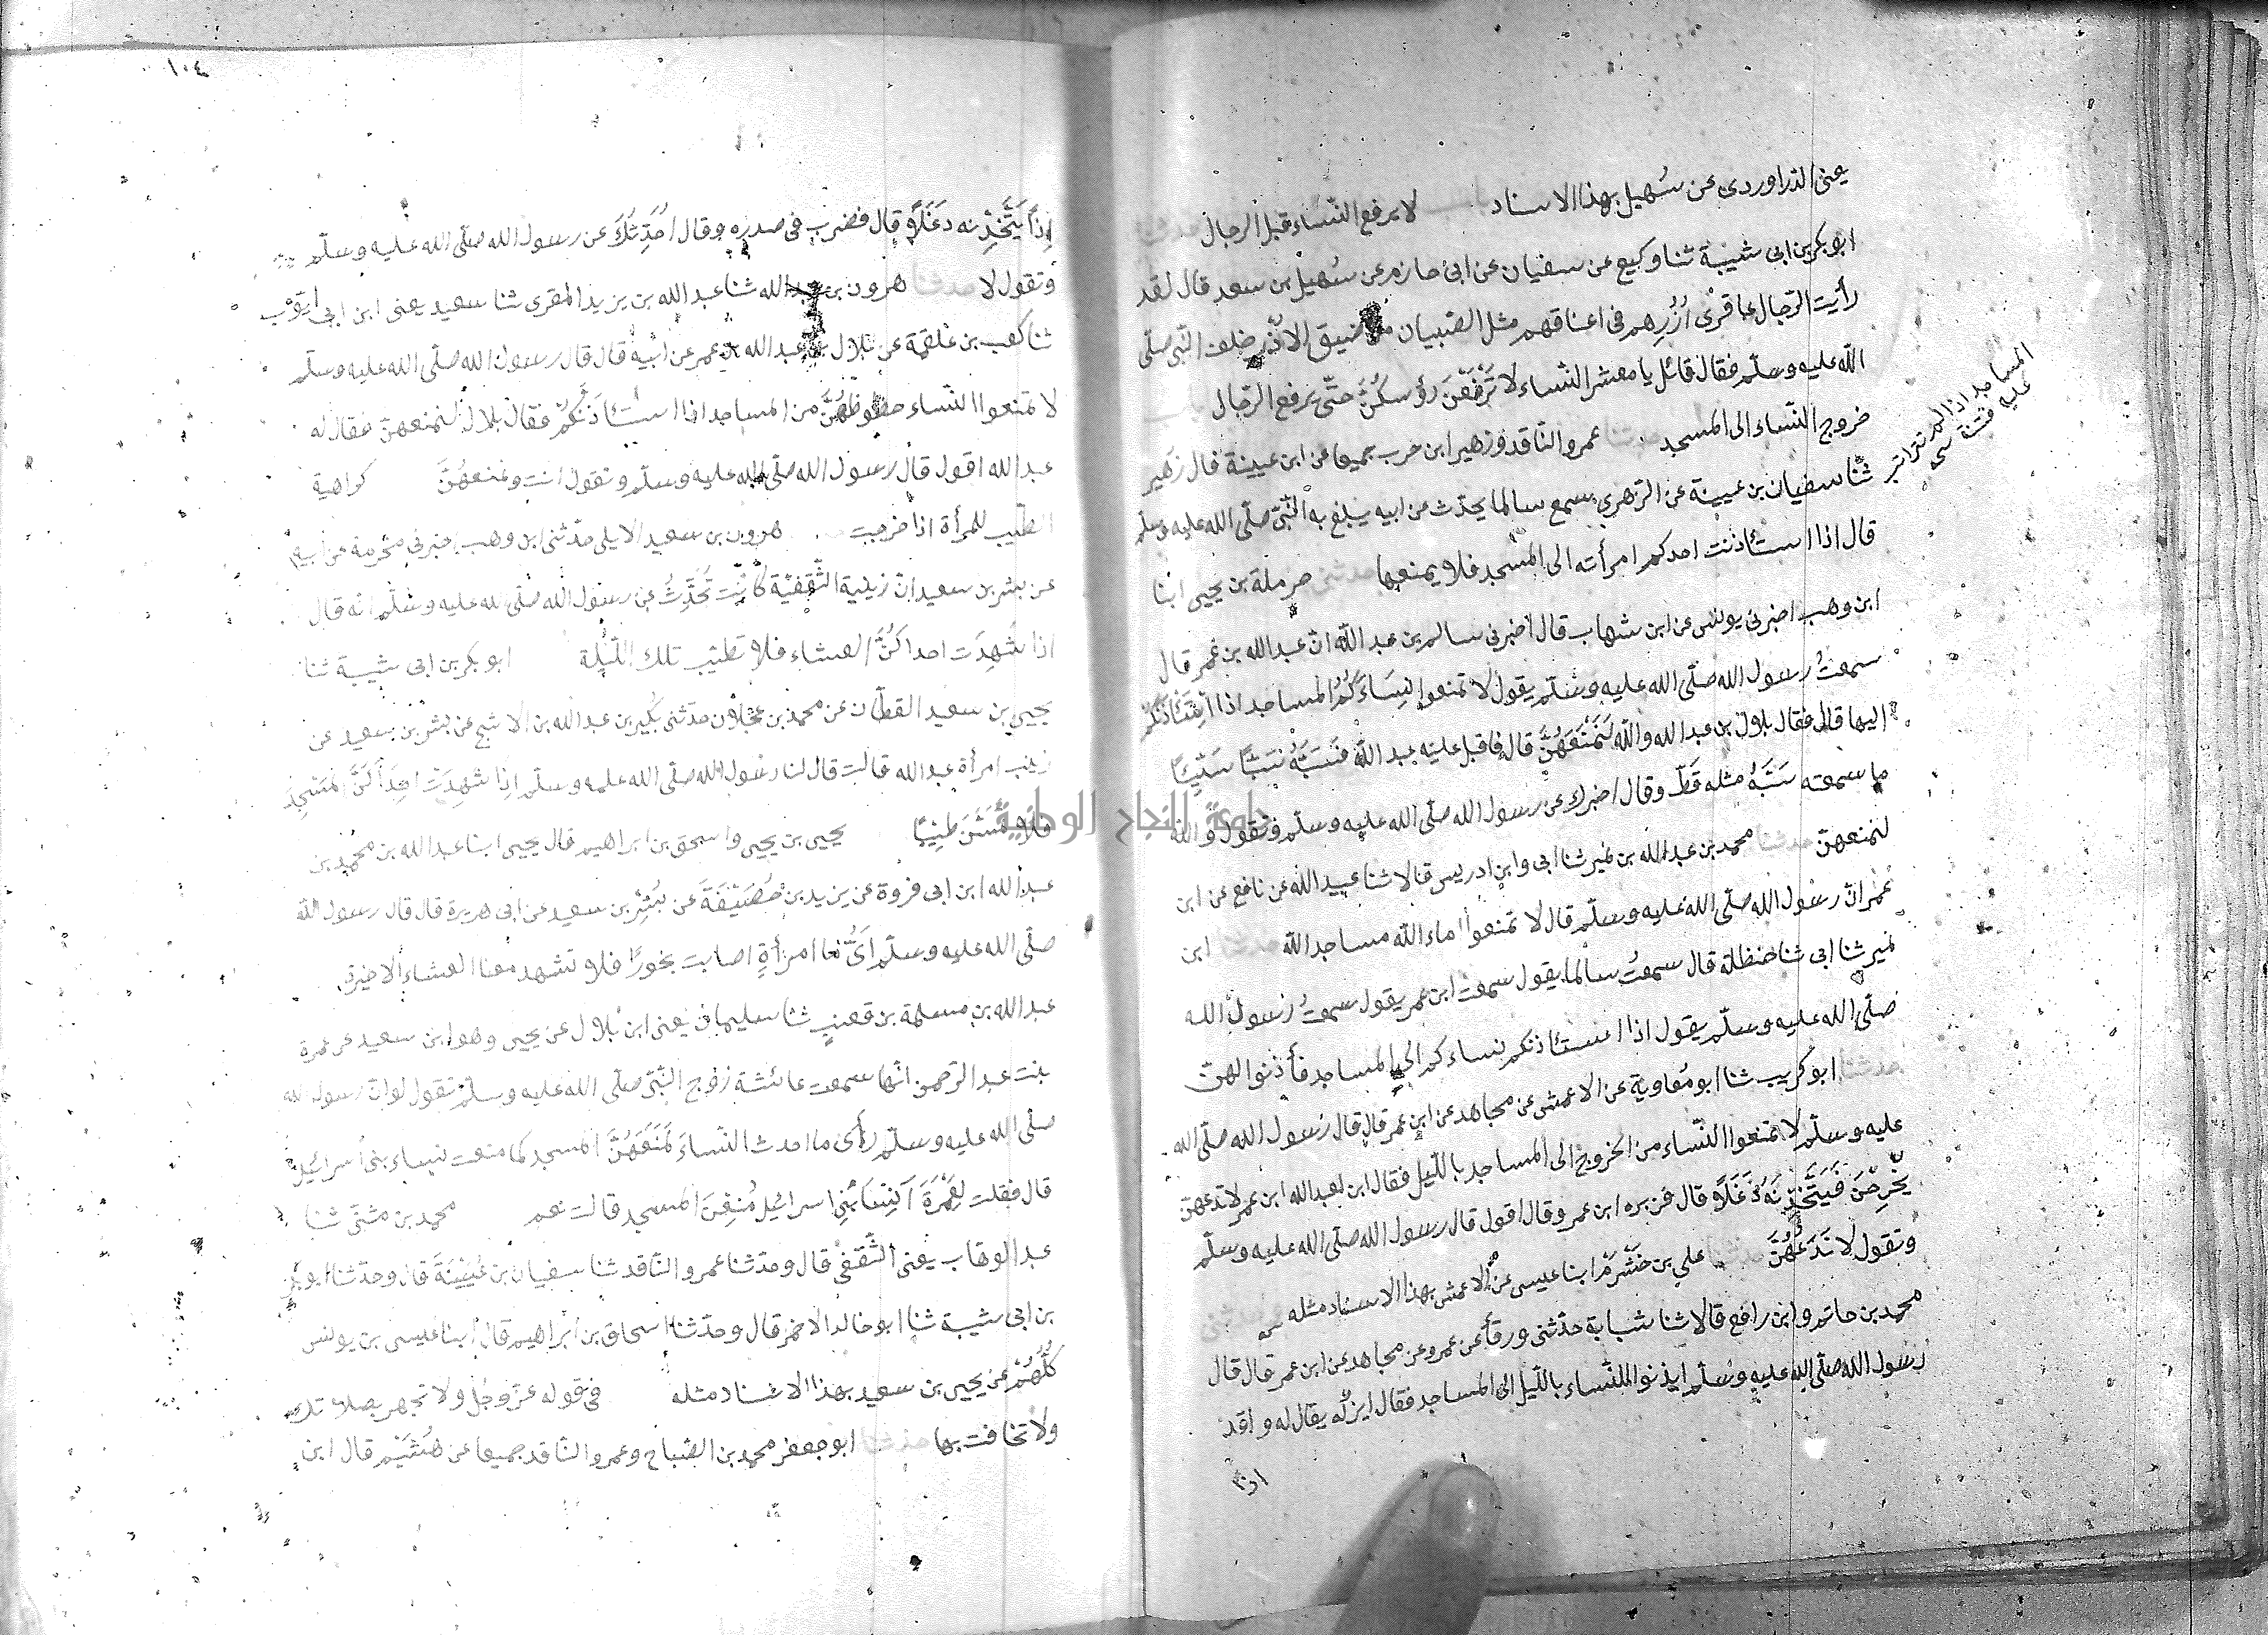 يعنى الدراوردى عن سُهيل بهذا الاسناد لا يرفع النّساء قبل الرجال حدثنا
ابو بكر بن ابى شيبة ثنا وكيع عن سفيان عن ابى حازم عن سُهيل بن سعد قال لقد
رأيت الرّجال عاقرى اُزُرِهم فى اعناقهم مثل الصّبيان من ضيق الاُزُر خلف النّبى صلّى
الله عليه وسلّم فقال قائل يا معشر النّساء لا تَرْفَعْنَ رؤسكُنَّ حتّى يرفع الرّجال باب
خروج النّساء الى المسجد حدثنا عمرو النّاقد وزهير ابن حرب جميعا عن ابن عيينة قال زهير
المساجد اذا لم تترتب
عليه فتنة
ثنا سفيان بن عيينة عن الزهرى سمع سالما يحدّث عن ابيه يبلغ به النّبىّ صلّى الله عليه وسلّم
قال اذا استئاذنت احدكم امرأته الى المسجد فلا يمنعها حدثنى حرملة بن يحيى ابنا
ابن وهب اخبرنى يونس عن ابن شهاب قال اخبرنى سالم بن عبد الله انّ عبد الله بن عُمر قال
سمعتُ رسول الله صلّى الله عليه وسلّم يقول لا تمنعوا نِسَاءَكُمُ المساجد اذا استئذنكم
اليها قال فقال بلال بن عبد الله والله لَنَمْنَعَهُنَّ قال فاقبل عليه عبد الله فَسَبَّهُ سَبًّا سَيِّئًا
ما سمعته سَبَّهُ مثله قَطّ وقال اخبرك عن رسول الله صلّى الله عليه وسلّم وتقول والله
لنمنعهنّ حدثنا محمد بن عبد الله بن نمير ثنا ابى وابن ادريس قالا ثنا عبيد الله عن نافع عن ابن
عُمر انّ رسول الله صلّى الله عليه وسلّم قال لا تمنعوا اماء الله مساجد الله حدثنا ابن
نمير ثنا ابى ثنا حنظلة قال سمعتُ سالما يقول سمعت ابن عمر يقول سمعتُ رسول الله
صلّى الله عليه وسلّم يقول اذا استئاذنكم نساءكم الى المساجد فأذنوا لهنّ
حدثنا ابو كريب ثنا ابو مُعاوية عن الاعمش عن مجاهد عن ابن عمر قال قال رسول الله صلّى الله
عليه وسلّم لا تمنعوا النّساء من الخروج الى المساجد بالّيل فقال ابن لعبد الله ابن عمر لا تدعهنّ
يخْرجْنَ فَيَتَّخِذْنَهُ دَغَلًا قال فزبره ابن عمر وقال اقول قال رسول الله صلّى الله عليه وسلّم
وتقول لا نَدَعُهُنَّ حدثنا على بن خَشْرَمْ ابنا عيسى عن الاعمش بهذا الاسناد مثله حدثنى
محمد بن حاتم وابن رافع قالا ثنا شبابة حدّثنى ورقأ عن عمرو عن مجاهد عن ابن عمر قال قال
رسول الله صلّى الله عليه وسلّم ايذنوا للنّساء بالّيل الى المساجد فقال ابنٌ له يقال له واقد
اذا
١٠٤
اِذًا يَتَّخِذْنه دَغَلًا قال فضرب فى صدره وقال اُحَدِّثُكَ عن رسول الله صلّى الله عليه وسلّم
وتقول لا حدثنا هرون بن عبد الله ثنا عبد الله بن يزيد المقرى ثنا سعيد يعنى ابن ابى ايّوب
ثنا كعب بن علقمة عن بلال بن عبد الله بن عمر عن ابيه قال قال رسول الله صلّى الله عليه وسلّم
لا تمنعوا النّساء حظوظهُنَّ من المساجد اذا استئذنّكم فقال بلال لنمنعهنّ فقال له
عبد الله اقول قال رسول الله صلّى الله عليه وسلّم وتقول انت ونمنعهُنَّ كراهية
الطّيب للمرأة اذا خرجت هرون بن سعيد الايلى حدّثنى ابن وهب اخبرنى مخرمة عن ابيه
عن بشر بن سعيد انّ زينبة الثّقفيّة كَانَتْ تُحَدِّثُ عن رسول الله صلّى الله عليه وسلّم انه قال
اذا شَهِدَت احداكُنَّ العشاء فلا تطيّب تلك الليّلة ابو بكر بن ابى شيبة ثنا
يحيى بن سعيد القطّان عن محمد بن عجلان حدّثنى بُكير بن عبد الله بن الاشج عن بشر بن سعيد عن
زينب امرأة عبد الله قالت قال لنا رسول الله صلّى الله عليه وسلّم اذا شَهِدَتْ احداكُنَّ المسْجِدَ
فلا تَمَسَّنَ طِيبًا يحيى بن يحيى واسحق بن ابراهيم قال يحيى ابنا عبد الله بن محمد بن
عبد الله ابن ابى فروة عن يزيد بن خُصَيْفَةَ عن بُشْرِ بن سعيد عن ابى هريرة قال قال رسول الله
صلّى الله عليه وسلّم ايُّما امرأةٍ اصابت بخورًا فلا تشهد معنا العشاء الاخيرة
عبد الله بن مسلمة بن قعنب ثنا سليمان يعنى ابن بلال عن يحيى وهو ابن سعيد عن عمرة
بنت عبد الرّحمن انّها سمعت عائشة زوج النّبىّ صلّى الله عليه وسلّم تقول لو انّ رسول الله
صلّى الله عليه وسلّم رأى ما احدث النّساءَ لَمَنَعَهُنَّ المسجد كما منعت نساء بنى اسرائيل
قال فقلت لِعَمْرَةَ اَنِسَاءُ بنى اسرائيل مُنِعْنَ المسجد قالت نعم محمد بن مثنّى ثنا
عبد الوهاب يعنى الثّقفىّ قال وحدّثنا عمرو النّاقد ثنا سفيان بن عُيَيْنَةَ قال وحدّثنا ابو بكر
بن ابى شيبة ثنا ابو خالد الاحمر قال وحدّثنا اسحاق بن ابراهيم قال ابنا عيسى بن يونس
كُلُّهُمْ عن يحيى بن سعيد بهذا الاسناد مثله فى قوله عزّوجلّ ولا تجهر بصلاتك
ولا تخافت بها حدثنا ابو جعفر محمد بن الصّباح وعمرو النّاقد جميعا عن هُشَيْم قال ابن
جامعة النجاح الوطنية